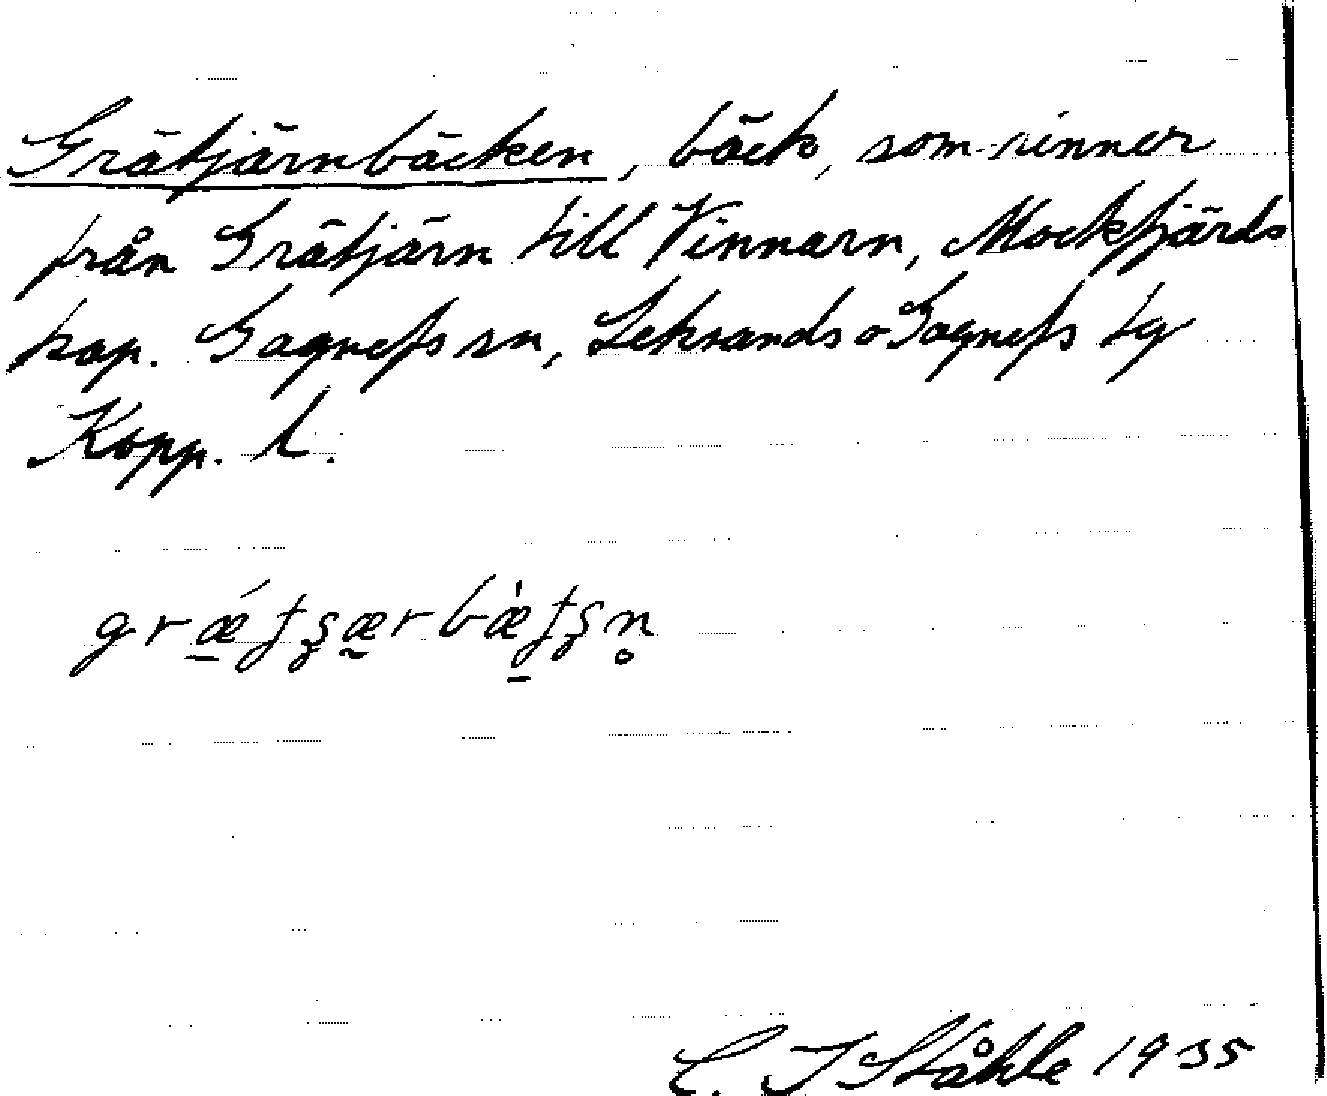 Grätjärnbäcken, bäck, som rinner
från Grätjärn till Vinnarn, Mockfjärds
kap. Gagnefs sn, Leksands o Gagnefs tg
Kopp. l.
C. I Ståhle 1935